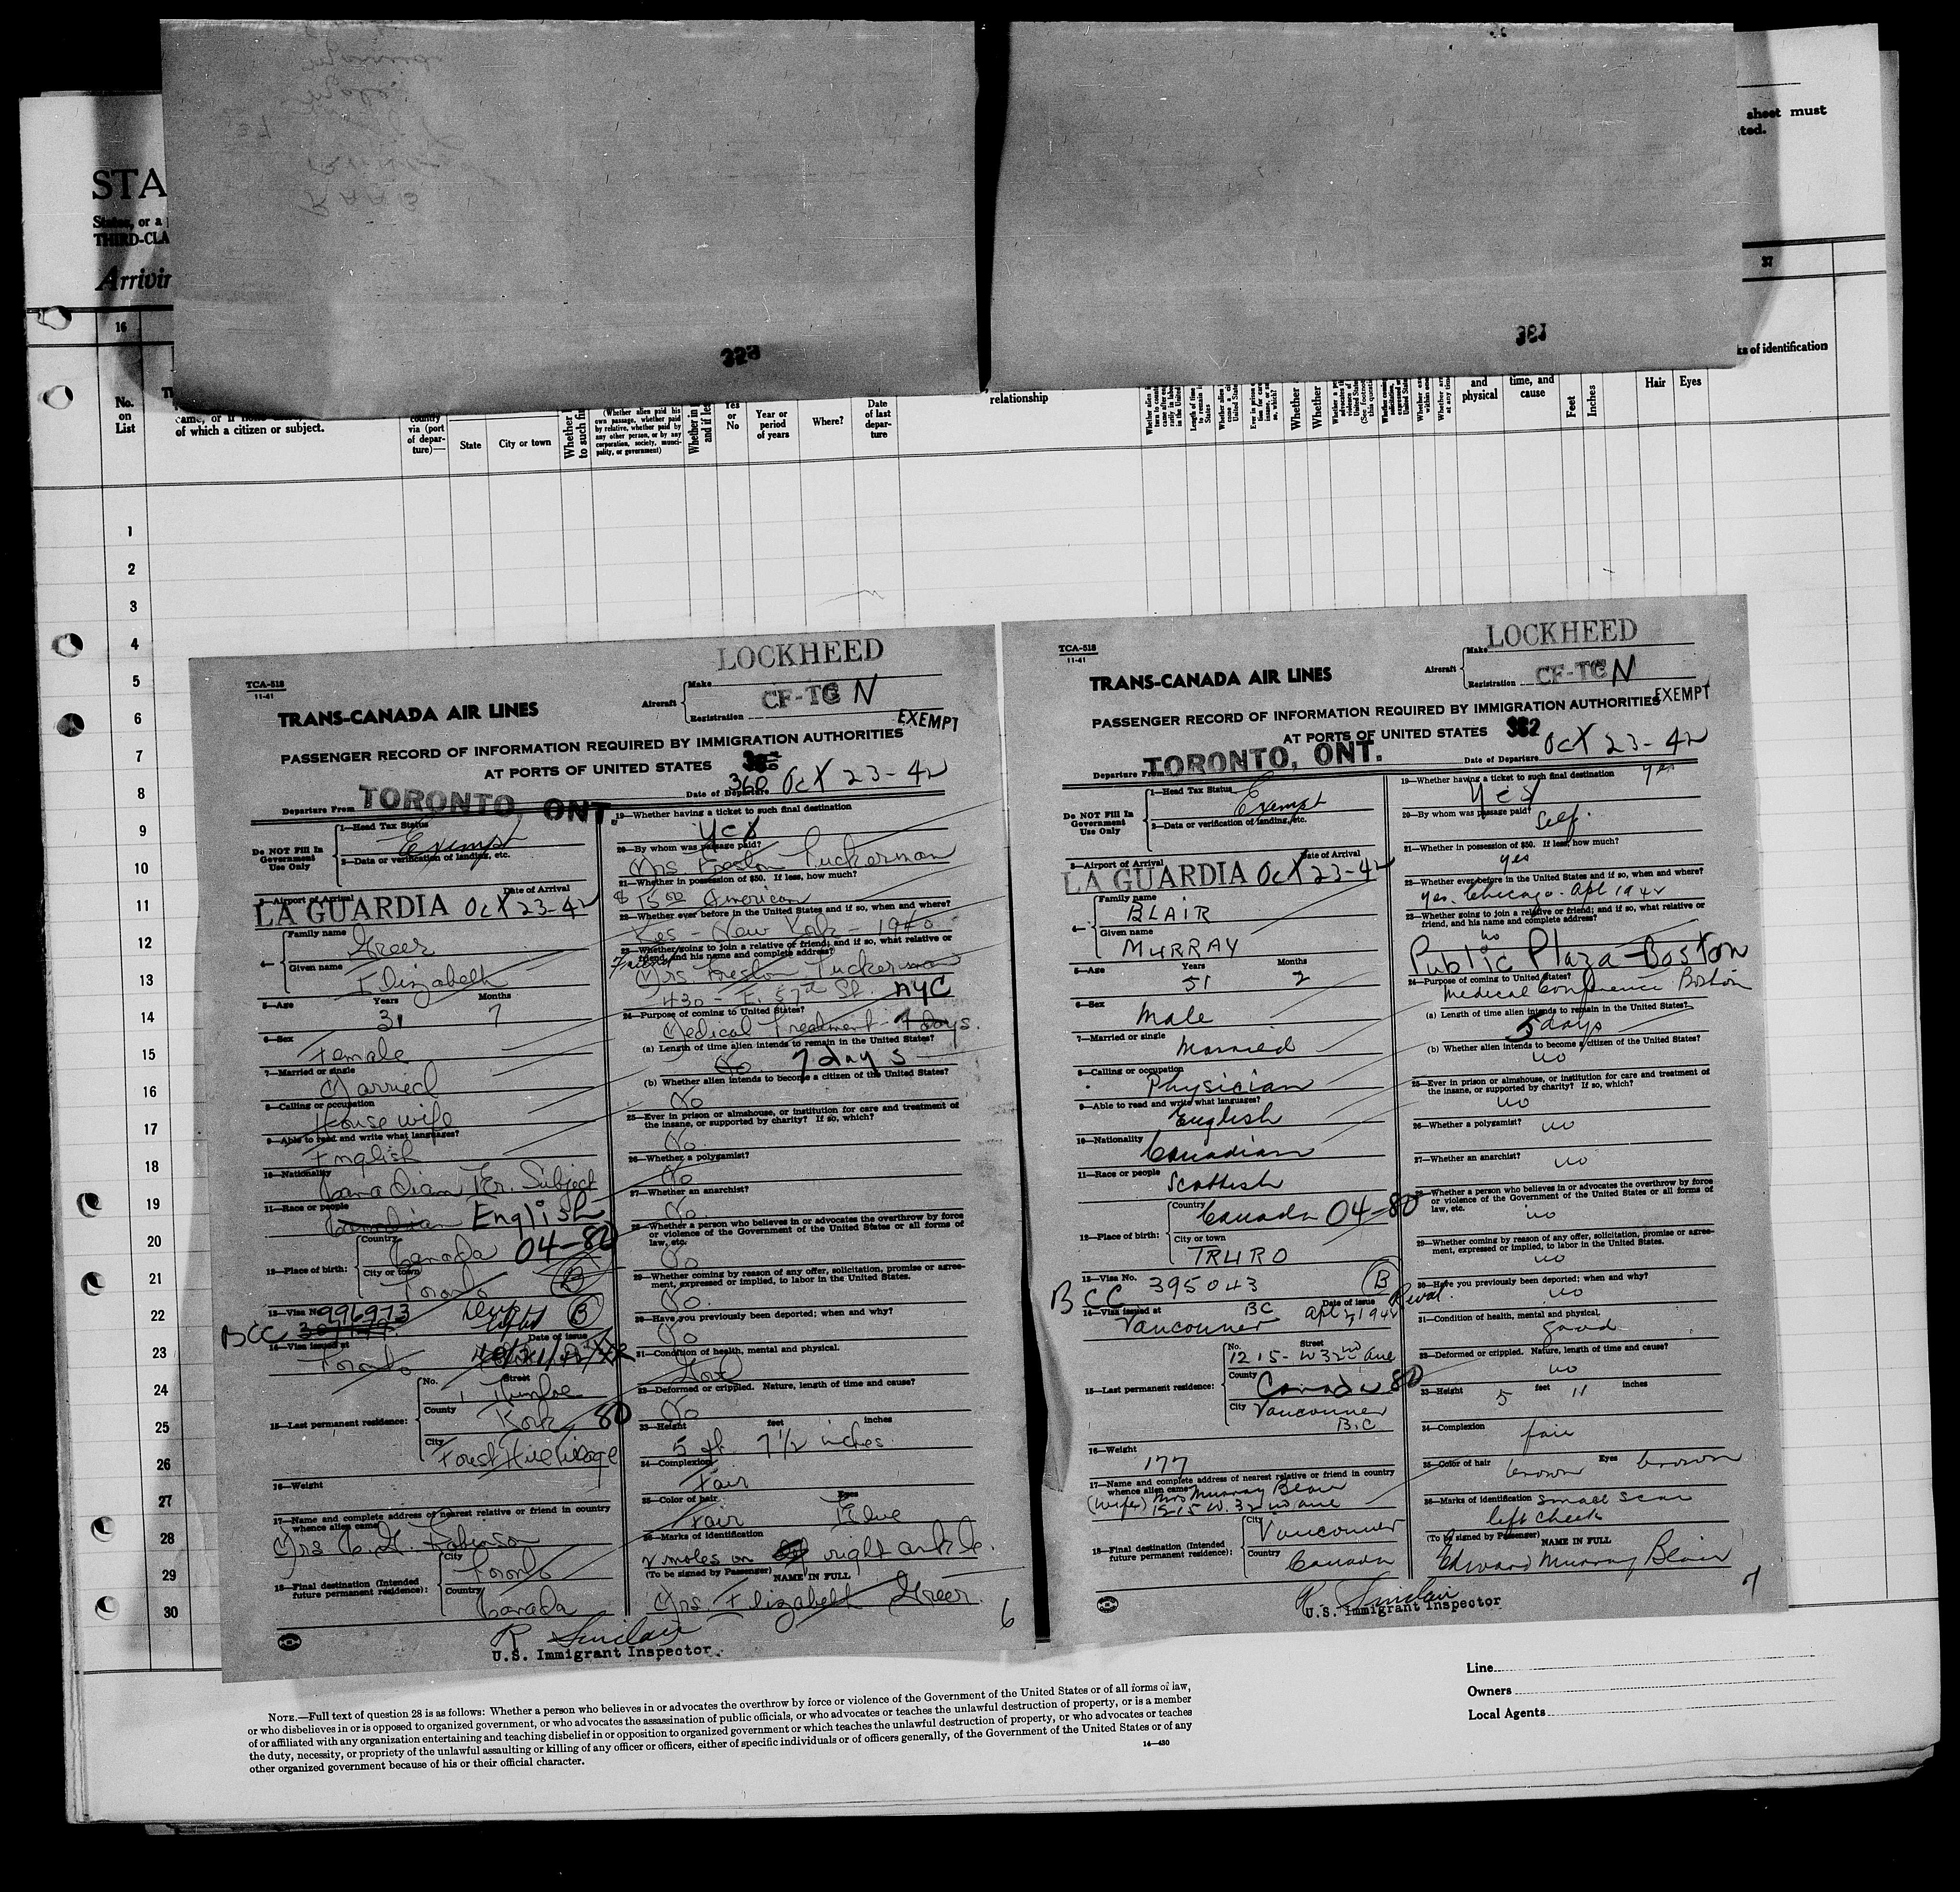 sheet must
ted.
STA
States, or a
THIRD-CLA
Arrivin
37
16
323
361
ks of identification
No.
on
List
came, or if
of which a citizen or subject.
country
via (port
of depar-
ture)—
State
City or town
Whether
to such fi
(Whether alien paid his
own passage, whether paid
by relative, whether paid by
any other person, or by any
corporation, society, munici-
pality, or government)
Whether in
and if les
Yes
or
No
Year or
period
of years
Where?
Date
of last
depar-
ture
relationship
Whether
Whether
and
physical
time, and
cause
Feet
Inches
Hair
Eyes
1
2
3
4
5
6
7
8
9
10
11
12
13
14
15
16
17
18
19
20
21
22
23
24
25
26
27
28
29
30
LOCKHEED
TCA-518
11-41
Aircraft
Make
Registration
CF-TC N
TRANS-CANADA AIR LINES
EXEMPT
PASSENGER RECORD OF INFORMATION REQUIRED BY IMMIGRATION AUTHORITIES
AT PORTS OF UNITED STATES
360
Departure From TORONTO, ONT.
Date of Departure Oct 23-42
Do NOT Fill In
Government
Use Only
1—Head Tax Status
Exempt
2—Data or verification of landing, etc.
3—Airport of Arrival
Date of Arrival
LA GUARDIA Oct 23-42
4—
Family name
Greer
Given name
Elizabeth
5—Age
Years
Months
31
7
6—Sex
Female
7—Married or single
Married
8—Calling or occupation
Housewife
9—Able to read and write what languages?
English
10—Nationality
Canadian Br. Subject
11—Race or people
Canadian English
12—Place of birth:
Country
Canada 04-80
City or town
Toronto
B
13—Visa No.
996973
B
BCC
14—Visa issued at
Date of issue
Toronto
15—Last permanent residence:
No.
Street
County
York 80
City
Forest Hill Village
16—Weight
17—Name and complete address of nearest relative or friend in country
whence alien came
Mrs C. G. Robinson
18—Final destination (Intended
future permanent residence):
City
Toronto
Country
Canada
19—Whether having a ticket to such final destination
Yes
20—By whom was passage paid?
Mrs Preston Tuckerman
21—Whether in possession of $50. If less, how much?
$ 15.00 American
22—Whether ever before in the United States and if so, when and where?
Yes - New York - 1940
23—Whether going to join a relative or friend; and if so, what relative or
friend, and his name and complete address?
Friend
Mrs Preston Tuckerman
430 - E. 57th St. NYC
24—Purpose of coming to United States?
Medical Treatment - 7 days.
(a) Length of time alien intends to remain in the United States?
No 7 days
(b) Whether alien intends to become a citizen of the United States?
No
25—Ever in prison or almshouse, or institution for care and treatment of
the insane, or supported by charity? If so, which?
No.
26—Whether a polygamist?
No
27—Whether an anarchist?
No.
28—Whether a person who believes in or advocates the overthrow by force
or violence of the Government of the United States or all forms of
law, etc.
No
29—Whether coming by reason of any offer, solicitation, promise or agree-
ment, expressed or implied, to labor in the United States.
No.
30—Have you previously been deported; when and why?
No
31—Condition of health, mental and physical.
Good
32—Deformed or crippled. Nature, length of time and cause?
No
33—Height
feet
inches
5 ft. 7 1/2 inches.
34—Complexion
Fair
35—Color of hair
Eyes
Fair
Blue
36—Marks of identification
2 moles on right ankle.
(To be signed by Passenger)
NAME IN FULL
Mrs. Elizabeth Greer.
6
R Sinclair
U.S. Immigrant Inspector.
LOCKHEED
TCA-518
11-41
Aircraft
Make
Registration
CF-TC N
TRANS-CANADA AIR LINES
EXEMPT
PASSENGER RECORD OF INFORMATION REQUIRED BY IMMIGRATION AUTHORITIES
AT PORTS OF UNITED STATES
362
Departure From TORONTO, ONT.
Date of Departure Oct 23-42
Do NOT Fill In
Government
Use Only
1—Head Tax Status
Exempt
2—Data or verification of landing, etc.
3—Airport of Arrival
Date of Arrival
LA GUARDIA Oct 23-42
4—
Family name
BLAIR
Given name
MURRAY
5—Age
Years
Months
51
2
6—Sex
Male
7—Married or single
Married
8—Calling or occupation
Physician
9—Able to read and write what languages?
English
10—Nationality
Canadian
11—Race or people
Scottish
12—Place of birth:
Country
Canada 04-80
City or town
TRURO
13—Visa No. 395043
B
BCC
14—Visa issued at
BC
Date of issue
Vancouver
Apl 2, 1942
15—Last permanent residence:
No.
Street
1215 - W 32nd Ave
County
Canada 80
City
Vancouver
B.C
16—Weight
177
17—Name and complete address of nearest relative or friend in country
whence alien came
(wife) Mrs Murray Blair
1215 W. 32nd ave
18—Final destination (Intended
future permanent residence):
City
Vancouver
Country
Canada
19—Whether having a ticket to such final destination
yes
Yes
20—By whom was passage paid?
Self.
21—Whether in possession of $50. If less, how much?
yes
22—Whether ever before in the United States and if so, when and where?
yes. Chicago - Apl 1942
23—Whether going to join a relative or friend; and if so, what relative or
friend, and his name and complete address?
no
Public Plaza - Boston
24—Purpose of coming to United States?
Medical Conference Boston
(a) Length of time alien intends to remain in the United States?
5 days
(b) Whether alien intends to become a citizen of the United States?
no
25—Ever in prison or almshouse, or institution for care and treatment of
the insane, or supported by charity? If so, which?
no
26—Whether a polygamist?
no
27—Whether an anarchist?
no
28—Whether a person who believes in or advocates the overthrow by force
or violence of the Government of the United States or all forms of
law, etc.
no
29—Whether coming by reason of any offer, solicitation, promise or agree-
ment, expressed or implied, to labor in the United States.
no
30—Have you previously been deported; when and why?
no
31—Condition of health, mental and physical.
good
32—Deformed or crippled. Nature, length of time and cause?
no
33—Height
5 feet 11 inches
34—Complexion
fair
35—Color of hair
brown
Eyes
brown
36—Marks of identification small scar
left cheek
(To be signed by Passenger)
NAME IN FULL
Edward Murray Blair
7
R. Sinclair
U.S. Immigrant Inspector
NOTE.—Full text of question 28 is as follows: Whether a person who believes in or advocates the overthrow by force or violence of the Government of the United States or of all forms of law,
or who disbelieves in or is opposed to organized government, or who advocates the assassination of public officials, or who advocates or teaches the unlawful destruction of property, or is a member
of or affiliated with any organization entertaining and teaching disbelief in or opposition to organized government or which teaches the unlawful destruction of property, or who advocates or teaches
the duty, necessity, or propriety of the unlawful assaulting or killing of any officer or officers, either of specific individuals or of officers generally, of the Government of the United States or of any
other organized government because of his or their official character.
14—430
Line
Owners
Local Agents